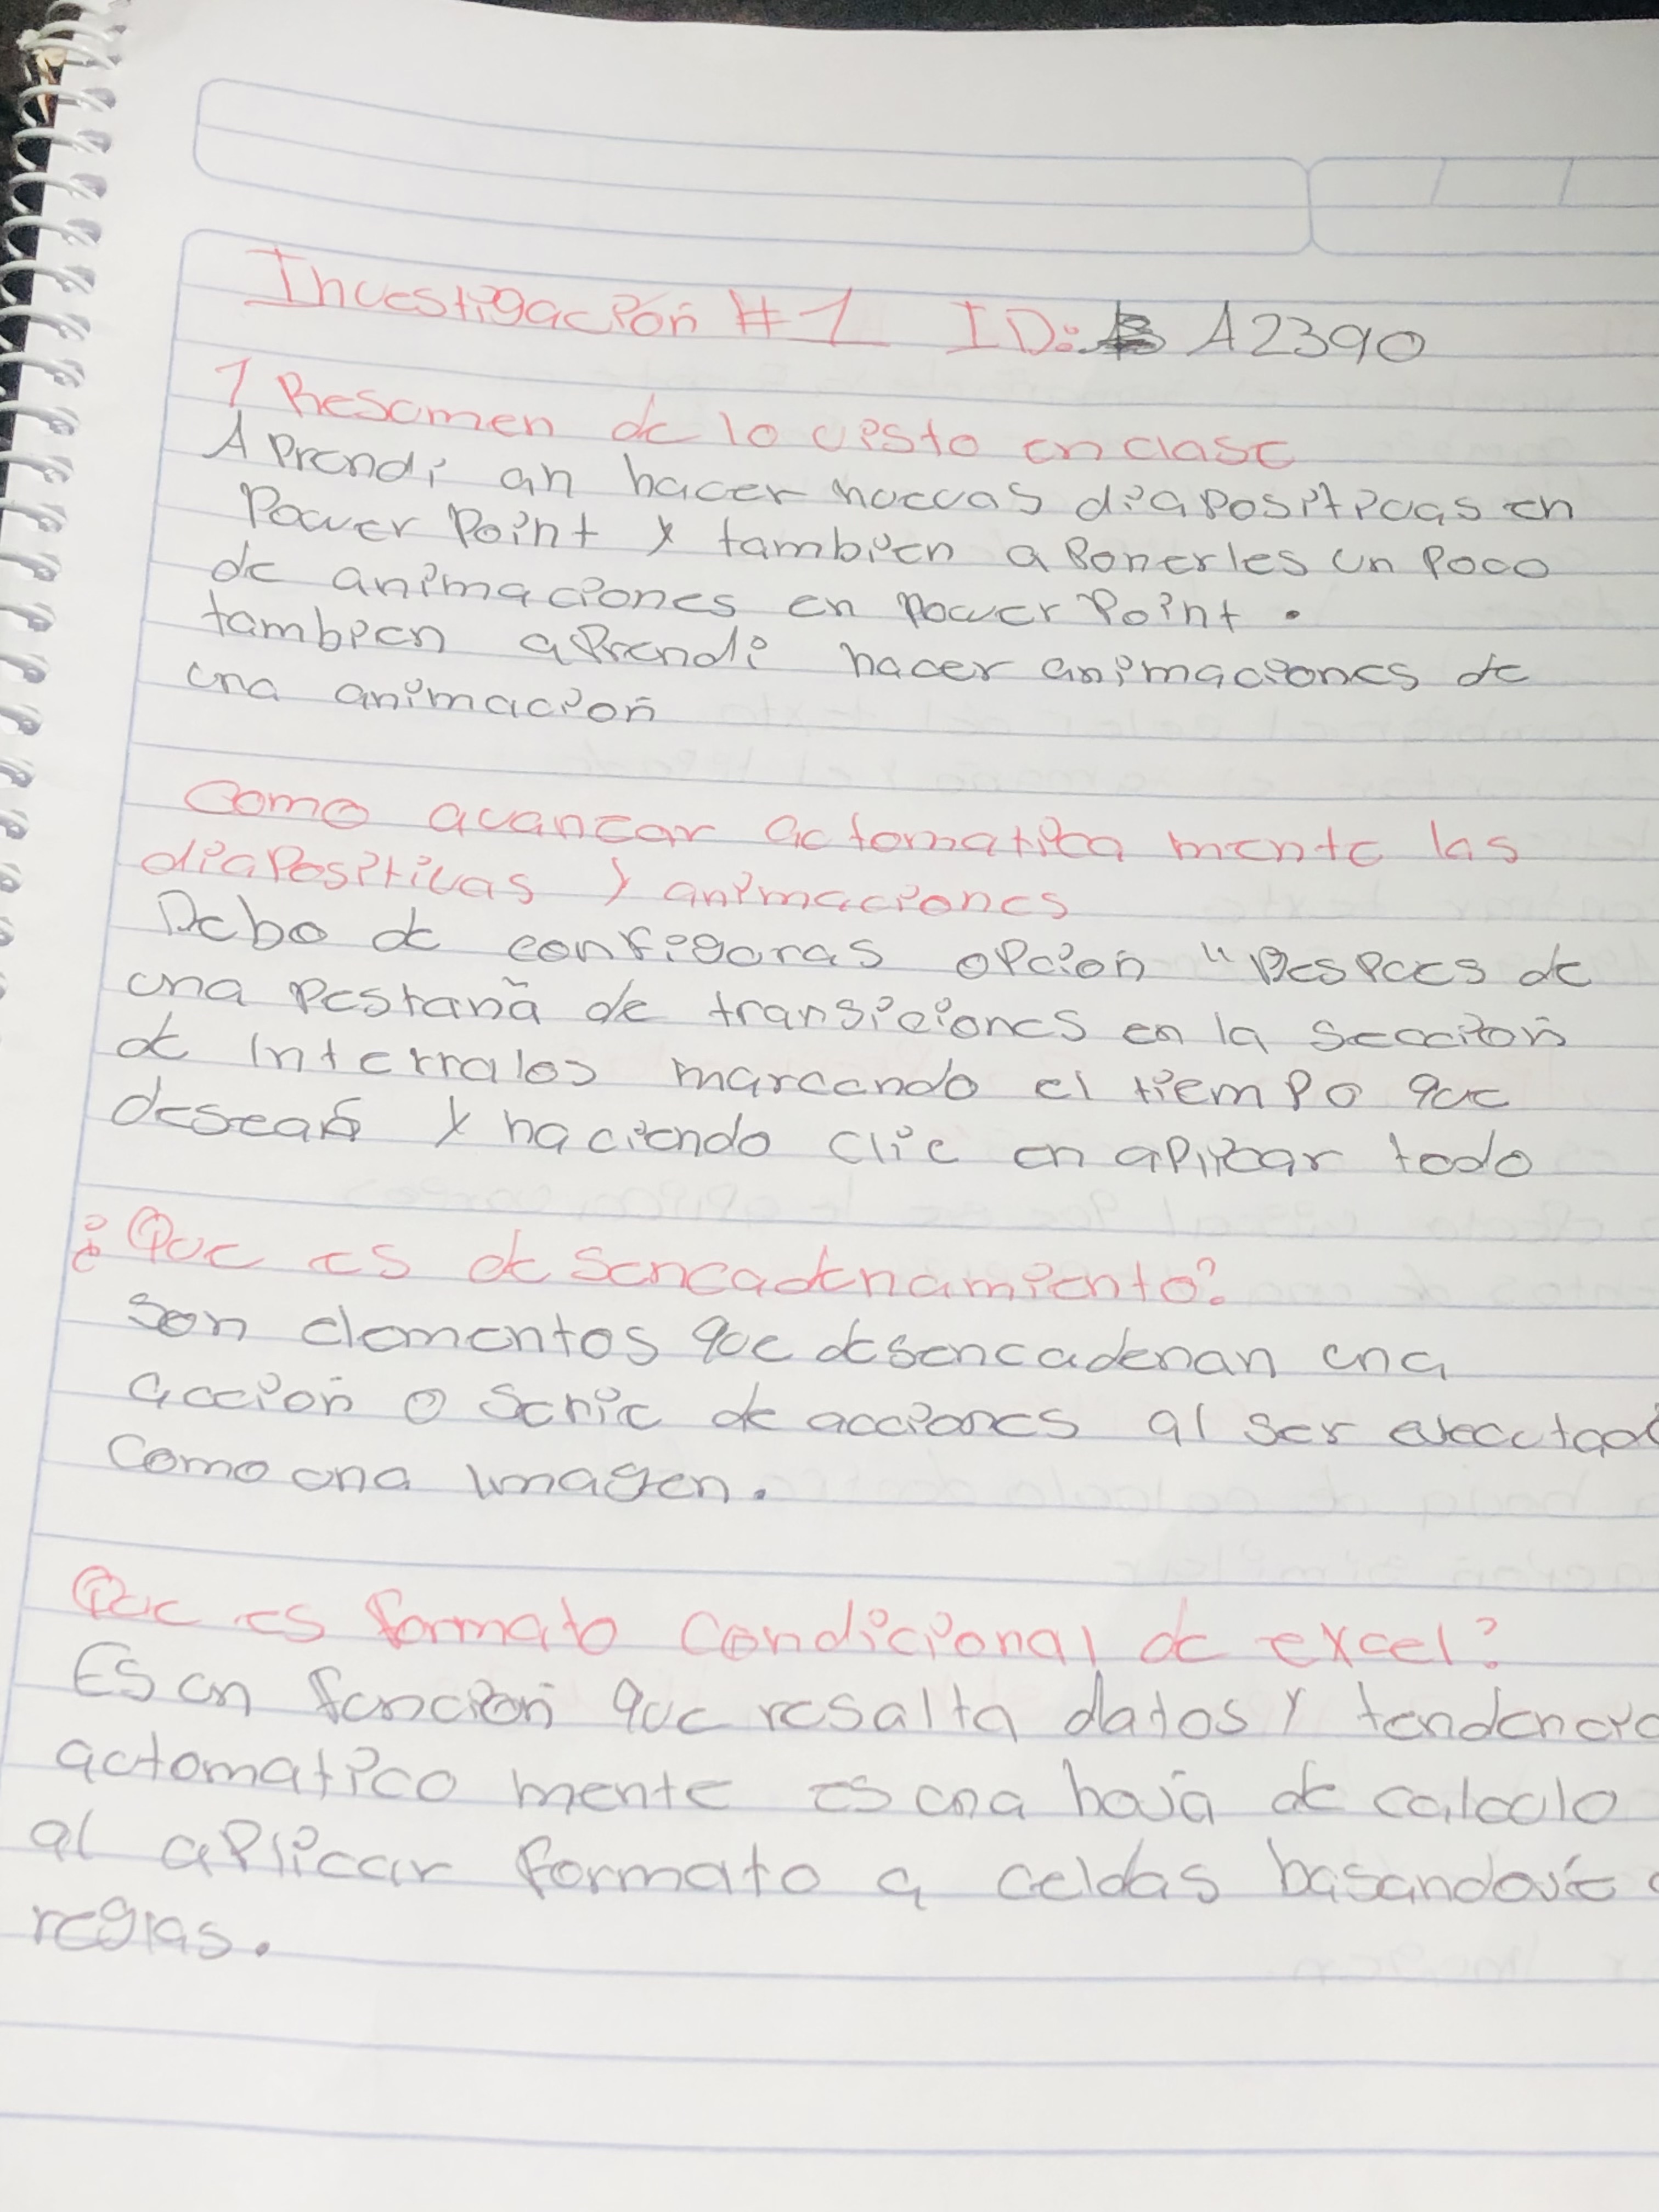 Investigación #1 ID: A2390
1 Resumen de lo visto en clase
Aprendi an hacer nuevas diapositivas en
Power Point y tambien a Ponerles un Poco
de animaciones en Power Point.
tambien aprendi hacer animaciones de
una animación
Como avanzar automatica mente las
diapositivas y animaciones
Debo de configuras opción "Despues de
una Pestaña de transiciones en la sección
de Interralos marcando el tiempo que
deseas y haciendo clic en aplicar todo
¿Que es desencadenamiento?
Son elementos que desencadenan una
acción o serie de acciones al ser ejecutad
Como una Imagen.
Que es formato condicional de excel?
Es un función que resalta datos y tendencia
automatico mente es una hoja de calculo
al aplicar formato a celdas basandose
reglas.